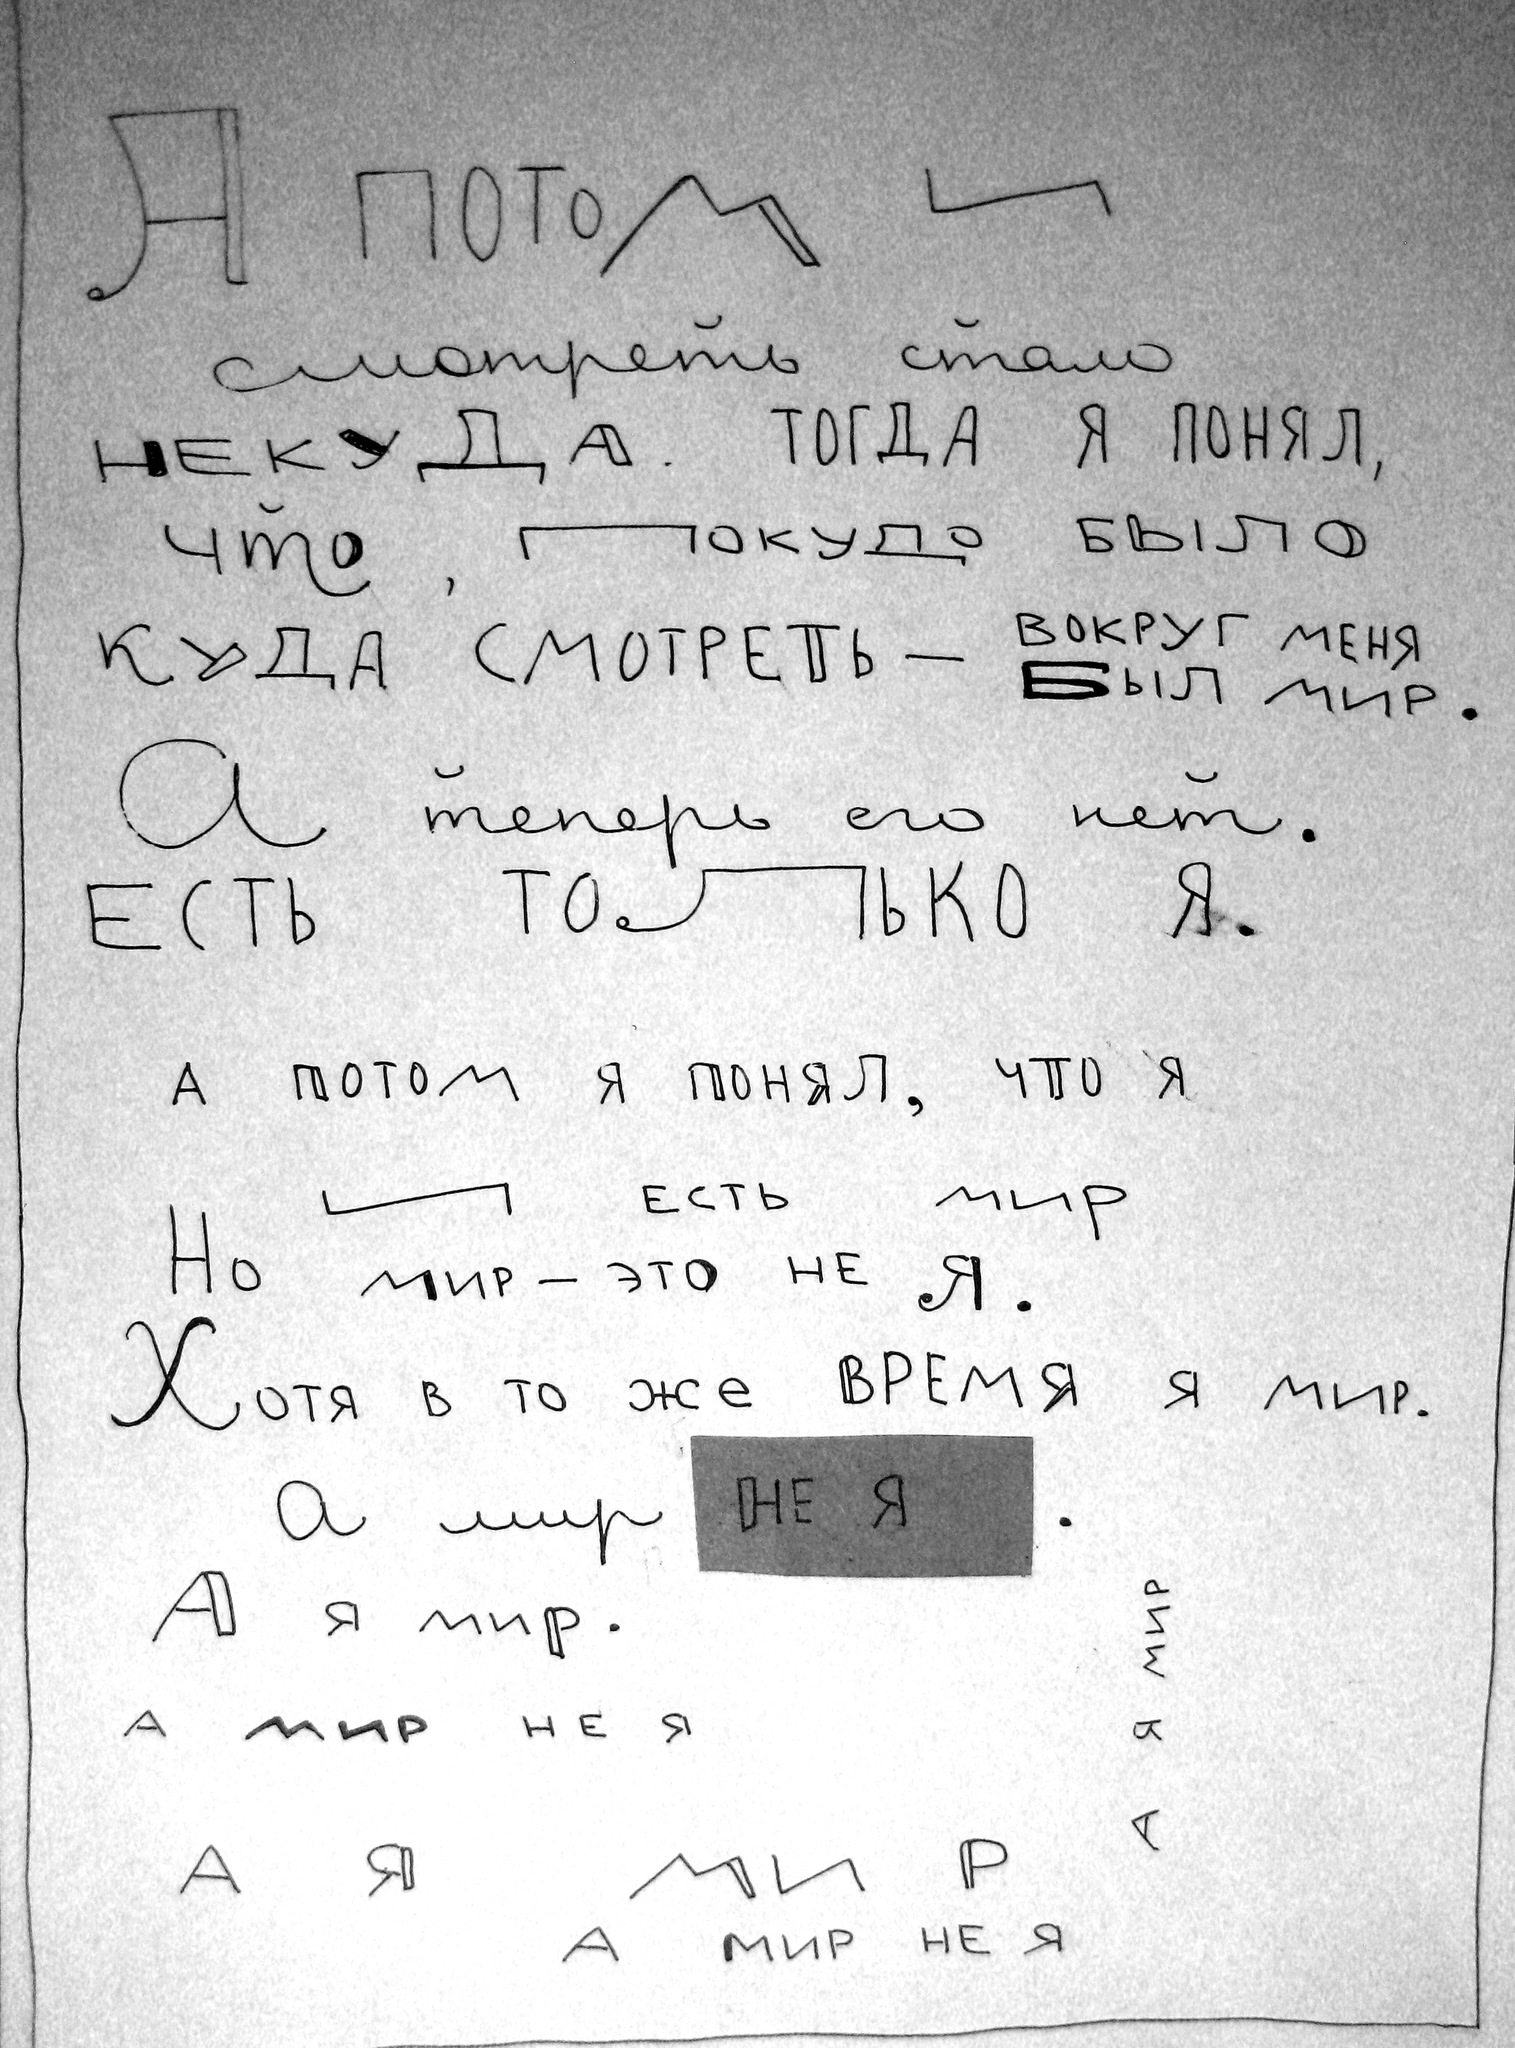 Я ПОТОМ И
смотреть стало
НЕКУДА. ТОГДА Я ПОНЯЛ,
что, ПОКУДО БЫЛО
КУДА СМОТРЕТЬ — ВОКРУГ МЕНЯ
БЫЛ МИР.
А теперь его нет.
ЕСТЬ ТОЛЬКО Я.
А ПОТОМ Я ПОНЯЛ, ЧТО Я
И ЕСТЬ МИР
Но МИР — ЭТО НЕ Я.
Хотя в то же ВРЕМЯ Я МИР.
а мир НЕ Я.
А я мир.
А МИР НЕ Я
А Я МИР
А Я МИР
А МИР НЕ Я